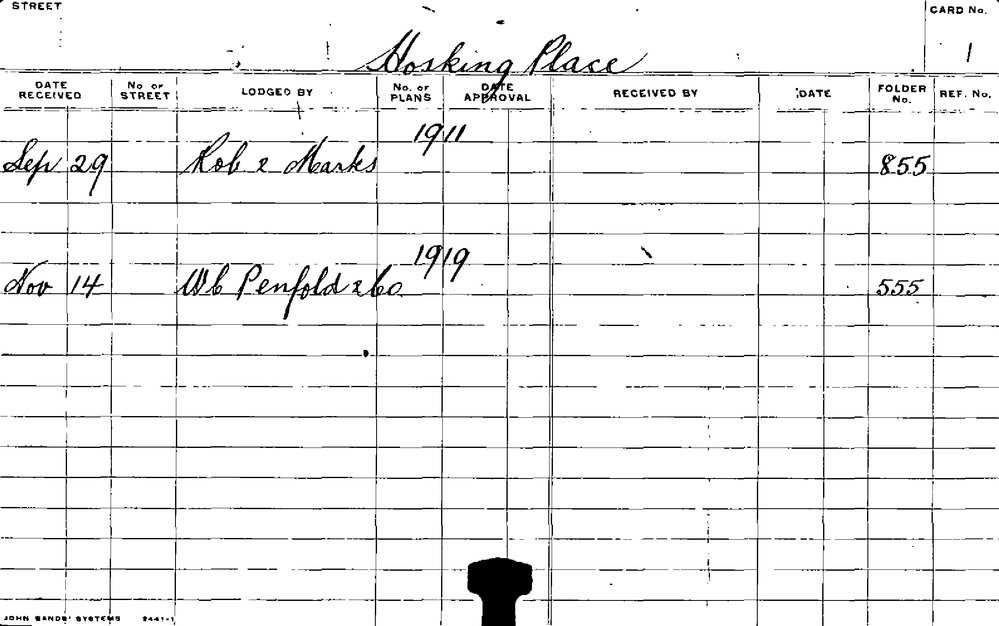 STREET
CARD No.
Hosking Place
1
DATE RECEIVED No of STREET LODGED BY No. of PLANS DATE APPROVAL RECEIVED BY DATE FOLDER No. REF. No.
1911
Sep 29 Rob & Marks 855
1919
Nov 14 WC Penfold & Co 555
JOHN SANDS' SYSTEMS 2441-1